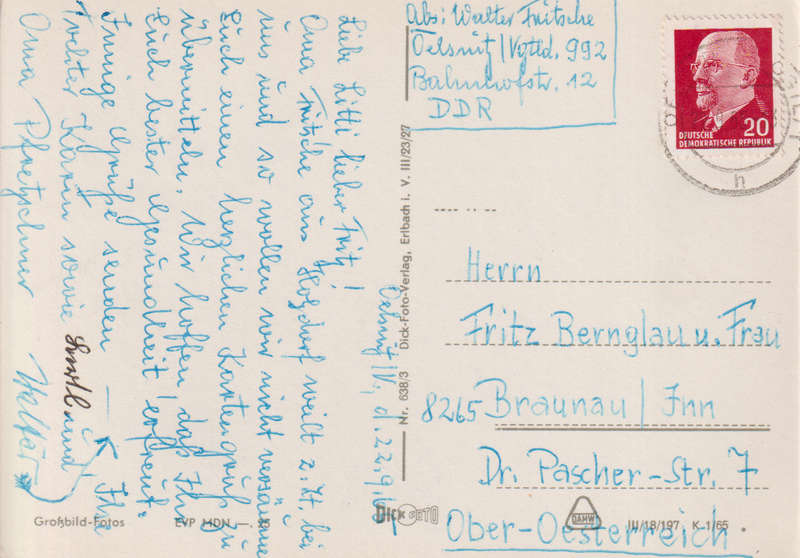 Abs: Walter Fritsche
Oelsnitz/Vgtld. 992
Bahnhofstr. 12
DDR
20
DEUTSCHE
DEMOKRATISCHE REPUBLIK
h
Herrn
Fritz Bernglau u. Frau
8265 Braunau/Inn
Dr. Pascher-Str. 7
Ober-Oesterreich
Oelsnitz/V., d. 22.9.
Liebe Litti lieber Fritz!
Oma Fritsche aus Holzdorf weilt z. Zt. bei
uns und so wollen wir nicht versäumen
Euch einen herzlichen Kartengruß zu
übermitteln. Wir hoffen, daß Ihr
Euch bester Gesundheit erfreut.
Innige Grüße senden — Ihre
Tochter Karin sowie und
Oma Pfretzschner Walter
Nr. 638/3 Dick-Foto-Verlag, Erlbach i. V. III/23/27
Großbild-Fotos EVP MDN —.
DICK FOTO
DAMW
III/18/197 K 1/65